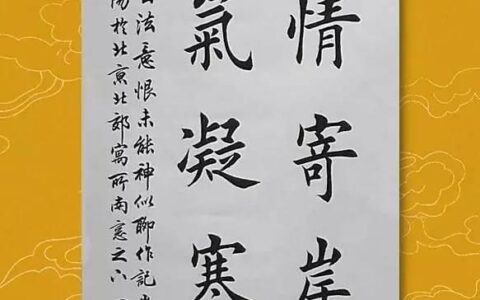 情寄岸
氣凝寒
法意恨未能神似聊作記
於北京北郊寓所南窓之下